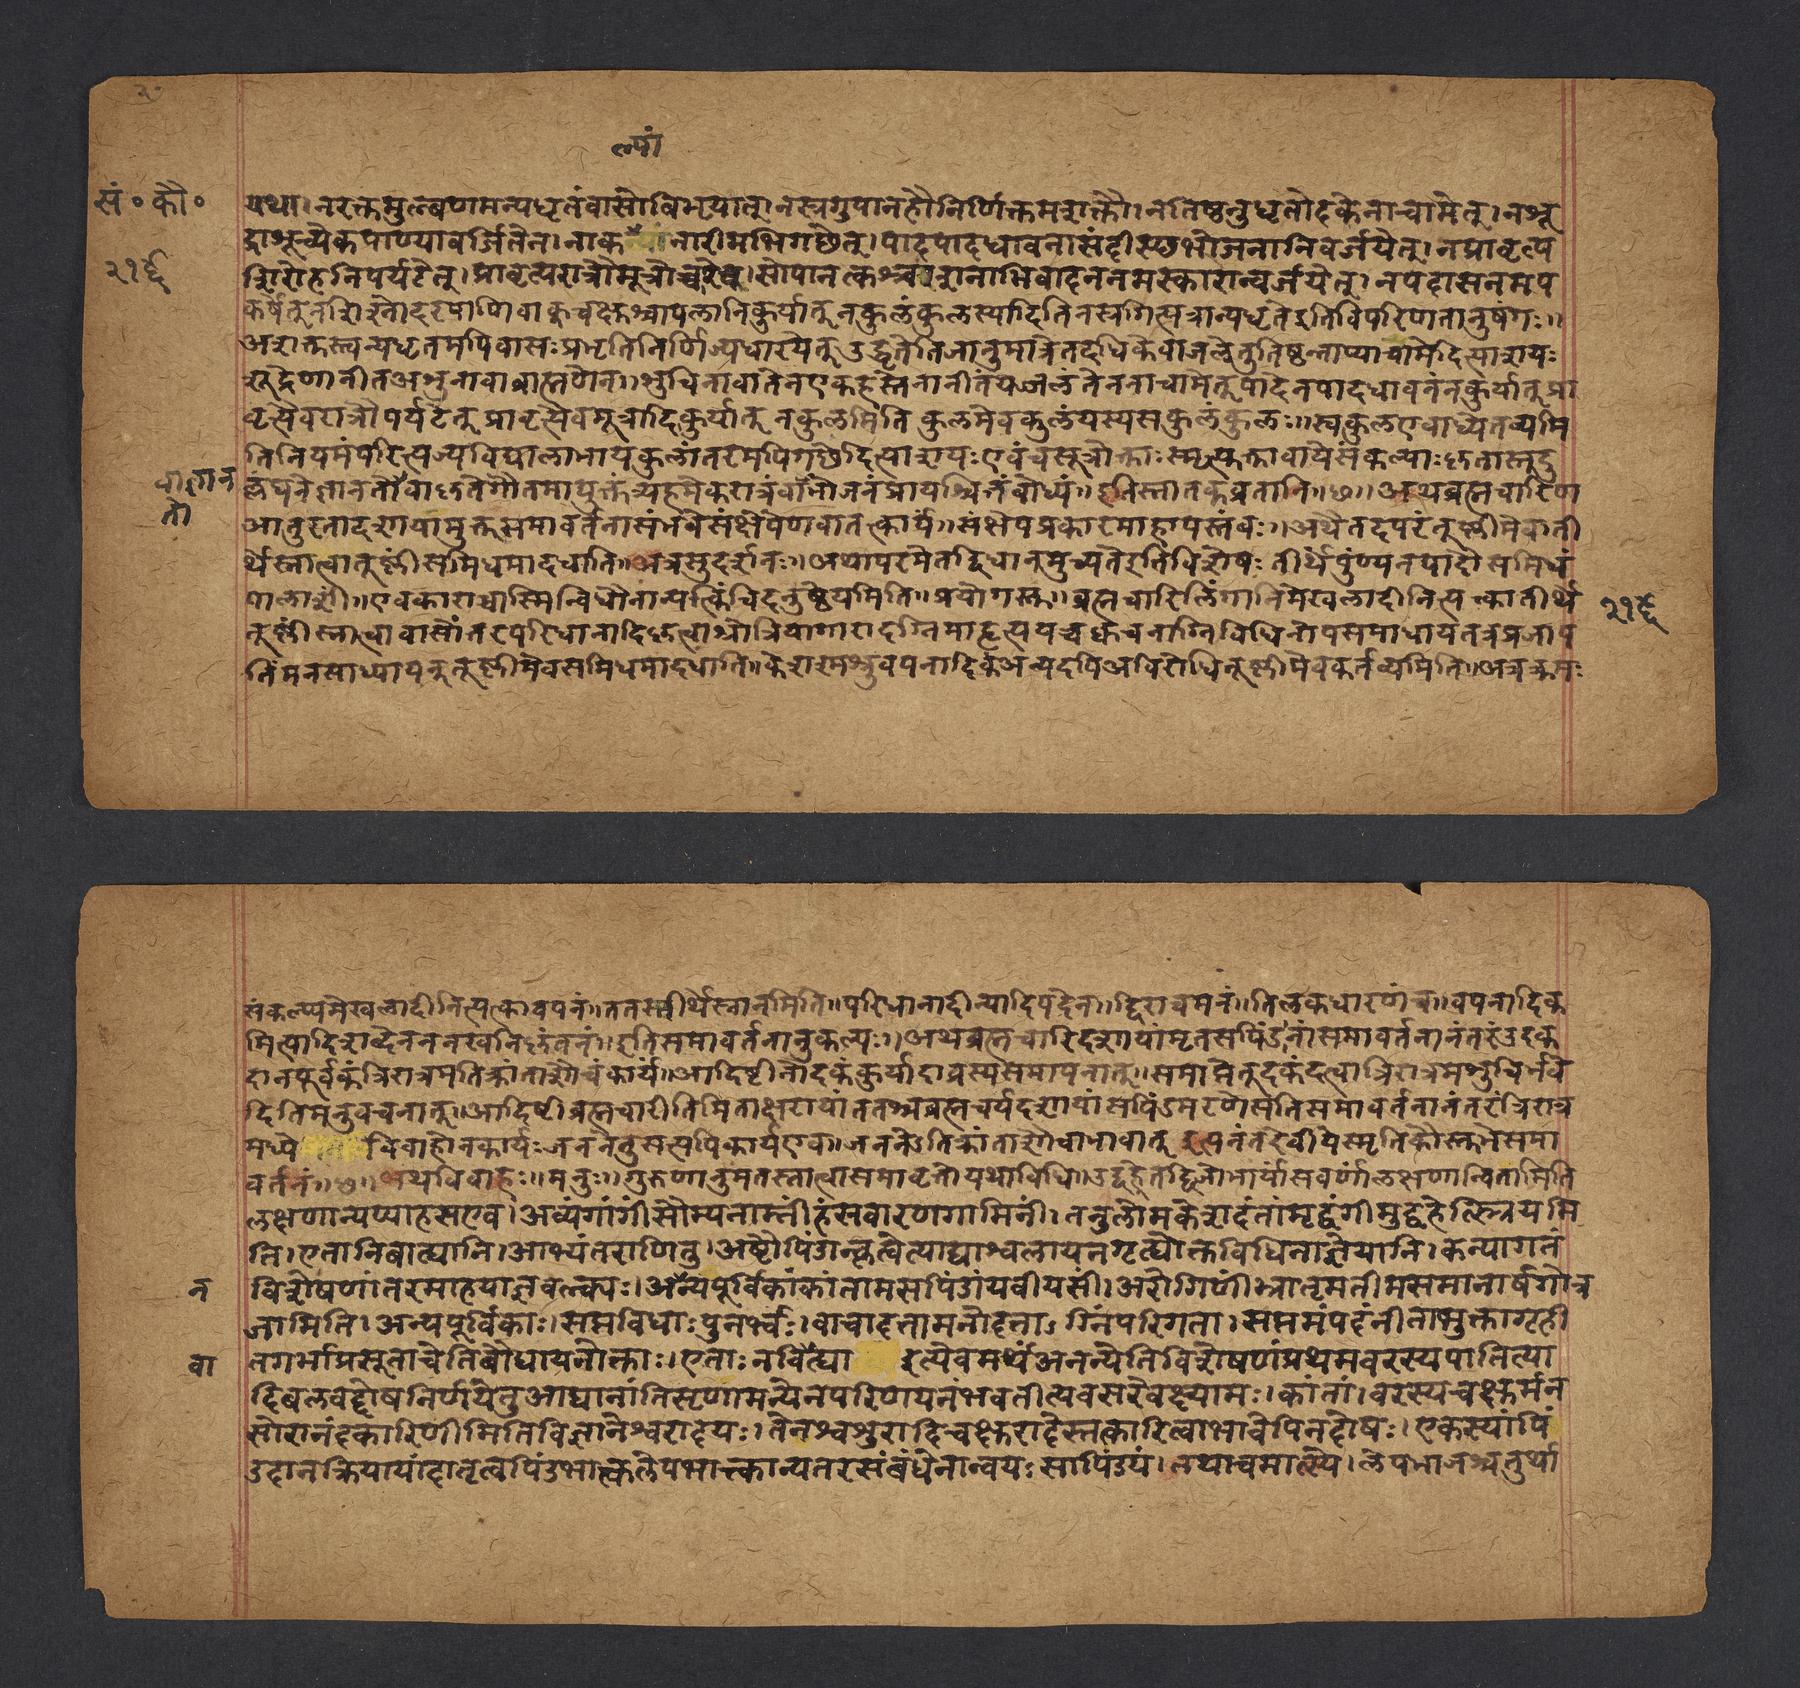 ल्पां
सं॰ कौ॰
यथा। नरक्तमुल्बणमन्यधृतंवासोबिभृयात्। नस्रगुपानहौनिर्णिक्तमशक्तौ। नतिष्ठन्नुधृतोदकेनाचामेत्। नशू
द्राशुच्येकपाण्यावर्जितेन। नाकल्यांनारीमभिगछेत्। पादपादधावनासंदीस्छभोजनानिवर्जयेत्। नप्रावृत्य
२१६
शिरोहनिपर्यटेत्। प्रावृत्यरात्रौमूत्रोच्चारेच। सोपानत्कश्चाशनाभिवादननमस्कारान्वर्जयेत्। नपदासनमप
कर्षेत्नशिश्नोदरपाणिवाक्चक्षुश्चापलानिकुर्यात् नकुलंकुलस्यादितिनस्रगित्यत्रान्यधृतेइतिविपरिणतानुषंगः॥
अशक्तस्त्वन्यधृतमपिवासःप्रभृतिनिर्णिज्यधारयेत् उद्धृतेतिजानुमात्रेतदधिकेवाजलेतुतिष्ठन्नाप्याचामेदित्याशयः
शूद्रेणानीतअशुनावाब्राह्मणेन॥शुचिनावातेनएकहस्तेनानीतंयज्जलंतेननाचामेत् पादेनपादधावनंनकुर्यात् प्रा
वृत्यैवरात्रौपर्यटेत् प्रावृत्यैवमूत्रादिकुर्यात् नकुलमिति कुलमेवकुलंयस्यसकुलंकुलः॥स्वकुलएवाध्येतव्यमि
तिनियमंपरित्यज्यविद्यालाभायकुलांतरमपिगछेदित्याशयःएवंचसूत्रोक्ताःस्मृत्युक्तावायेसंकल्पाःकृतास्तदु
ल्लंघनेज्ञानतोवाकृतेगौतमाद्युक्तंत्र्यहमेकरात्रंवाभोजनंप्रायश्चित्तंबोध्यं॥इतिस्नातकव्रतानि॥छ॥अथब्रह्मचारिण
आतुरतादशायामुक्तसमावर्तनासंभवेसंक्षेपेणवातत्कार्यं॥संक्षेपप्रकारमाहापस्तंबः॥अथैतदपरंतूष्णीमेवती
र्थेस्नात्वातूष्णींसमिधमादधाति॥अत्रसुदर्शनः॥अथापरमेतद्विधानमुच्यतेइतिविशेषः तीर्थेपुण्यनद्यादौसमिधं
पालाशीं॥एवकाराच्चास्मिन्विधौनान्यत्किंचिदनुष्ठेयमिति॥प्रयोगस्तु॥ब्रह्मचारिलिंगानिमेखलादीनित्यक्त्वातीर्थे
२१६
तूष्णीं स्नात्वावासोंतरपरिधानादिकृत्वाश्रोत्रियागारादग्निमाहृत्ययच्चक्वचनाग्निविधिनोपसमाधायतत्रप्रजाप
तिंमनसाध्यायन्तूष्णीमेवसमिधमादधाति॥केशश्मश्रुवपनादिकंअन्यदपिअविरोधितूष्णीमेवकर्तव्यमिति॥अत्रक्रमः
संकल्प्यमेखलादीनित्यक्त्वावपनं॥ततस्तीर्थेस्नानमिति॥परिधानादीन्यादिपदेन॥द्विराचमनं॥तिलकधारणंच॥वपनादिक
मित्यादिशब्देनननखनिकृंतनं॥इतिसमावर्तनानुकल्पः॥अथब्रह्मचारिदशायांमृतसपिंडानांसमावर्तनानंतरंउदक
दानपूर्वकंत्रिरात्रमतिक्रांताशौचंकार्यं॥आदिष्टीनोदकंकुर्यादाव्रतस्यसमापनात्॥समाप्तेतूदकंदत्वात्रिरात्रमशुचिर्भवे
दितिमनुवचनात्॥आदिष्टीब्रह्मचारीतिमिताक्षरायांततश्चब्रह्मचर्यदशायांसपिंडमरणेसतिसमावर्तनानंतरंत्रिरात्र
मध्ये विवाहोनकार्यःजननेतुसत्यपिकार्यएव॥जननेऽतिक्रांताशौचाभावात् इत्यनंतदेवीयेस्मृतिकौस्तुभेसमा
वर्तनं॥छ॥अथविवाहः॥मनुः॥गुरुणानुमतस्नात्वासमावृत्तोयथाविधि॥उद्वहेतद्विजोभार्यांसवर्णांलक्षणान्वितामिति
लक्षणान्यप्याहसएव।अव्यंगांगींसौम्यनाम्नींहंसवारणगामिनीं। तनुलोमकेशदंतांमृद्वंगीमुद्वहेत्स्त्रियमि
ति। एतानिबाह्यानि। आभ्यंतराणितु। अष्टौपिंडान्कृत्वेत्याद्याश्वलायनगृह्योक्तविधिनाज्ञेयानि। कन्यागतं
न विशेषणांतरमाहयाज्ञवल्क्यः। अनन्यपूर्विकांकांतामसपिंडांयवीयसीं। अरोगिणीं भ्रातृमतीमसमानार्षगोत्र
जामिति। अन्यपूर्विकाः। सप्तविधाःपुनर्भ्वः। वाचादत्तामनोदत्ताऽग्निंपरिगता। सप्तमंपदंनीताभुक्तागृही
वा तगर्भाप्रसूताचेतिबौधायनोक्ताः। एताःनविवाह्या इत्येवमर्थंअनन्येतिविशेषणंप्रथमवरस्यपातित्या
दिबलवद्दोषनिर्णयेतुआद्यानांतिसृणामन्येनपरिणयनंभवतीत्यवसरेवक्ष्यामः। कांतां। वरस्यचक्षुर्मन
सोरानंदकारिणीमितिविज्ञानेश्वरादयः। तेनश्वशुरादिचक्षुराद्देस्तत्कारित्वाभावेपिनदोषः। एकस्यांपिं
डदानक्रियायांदातृत्वपिंडभाक्त्वलेपभाक्त्वान्यतरसंबंधेनान्वयः सापिंड्यं। तथाचमात्स्ये। लेपभाजश्चतुर्था